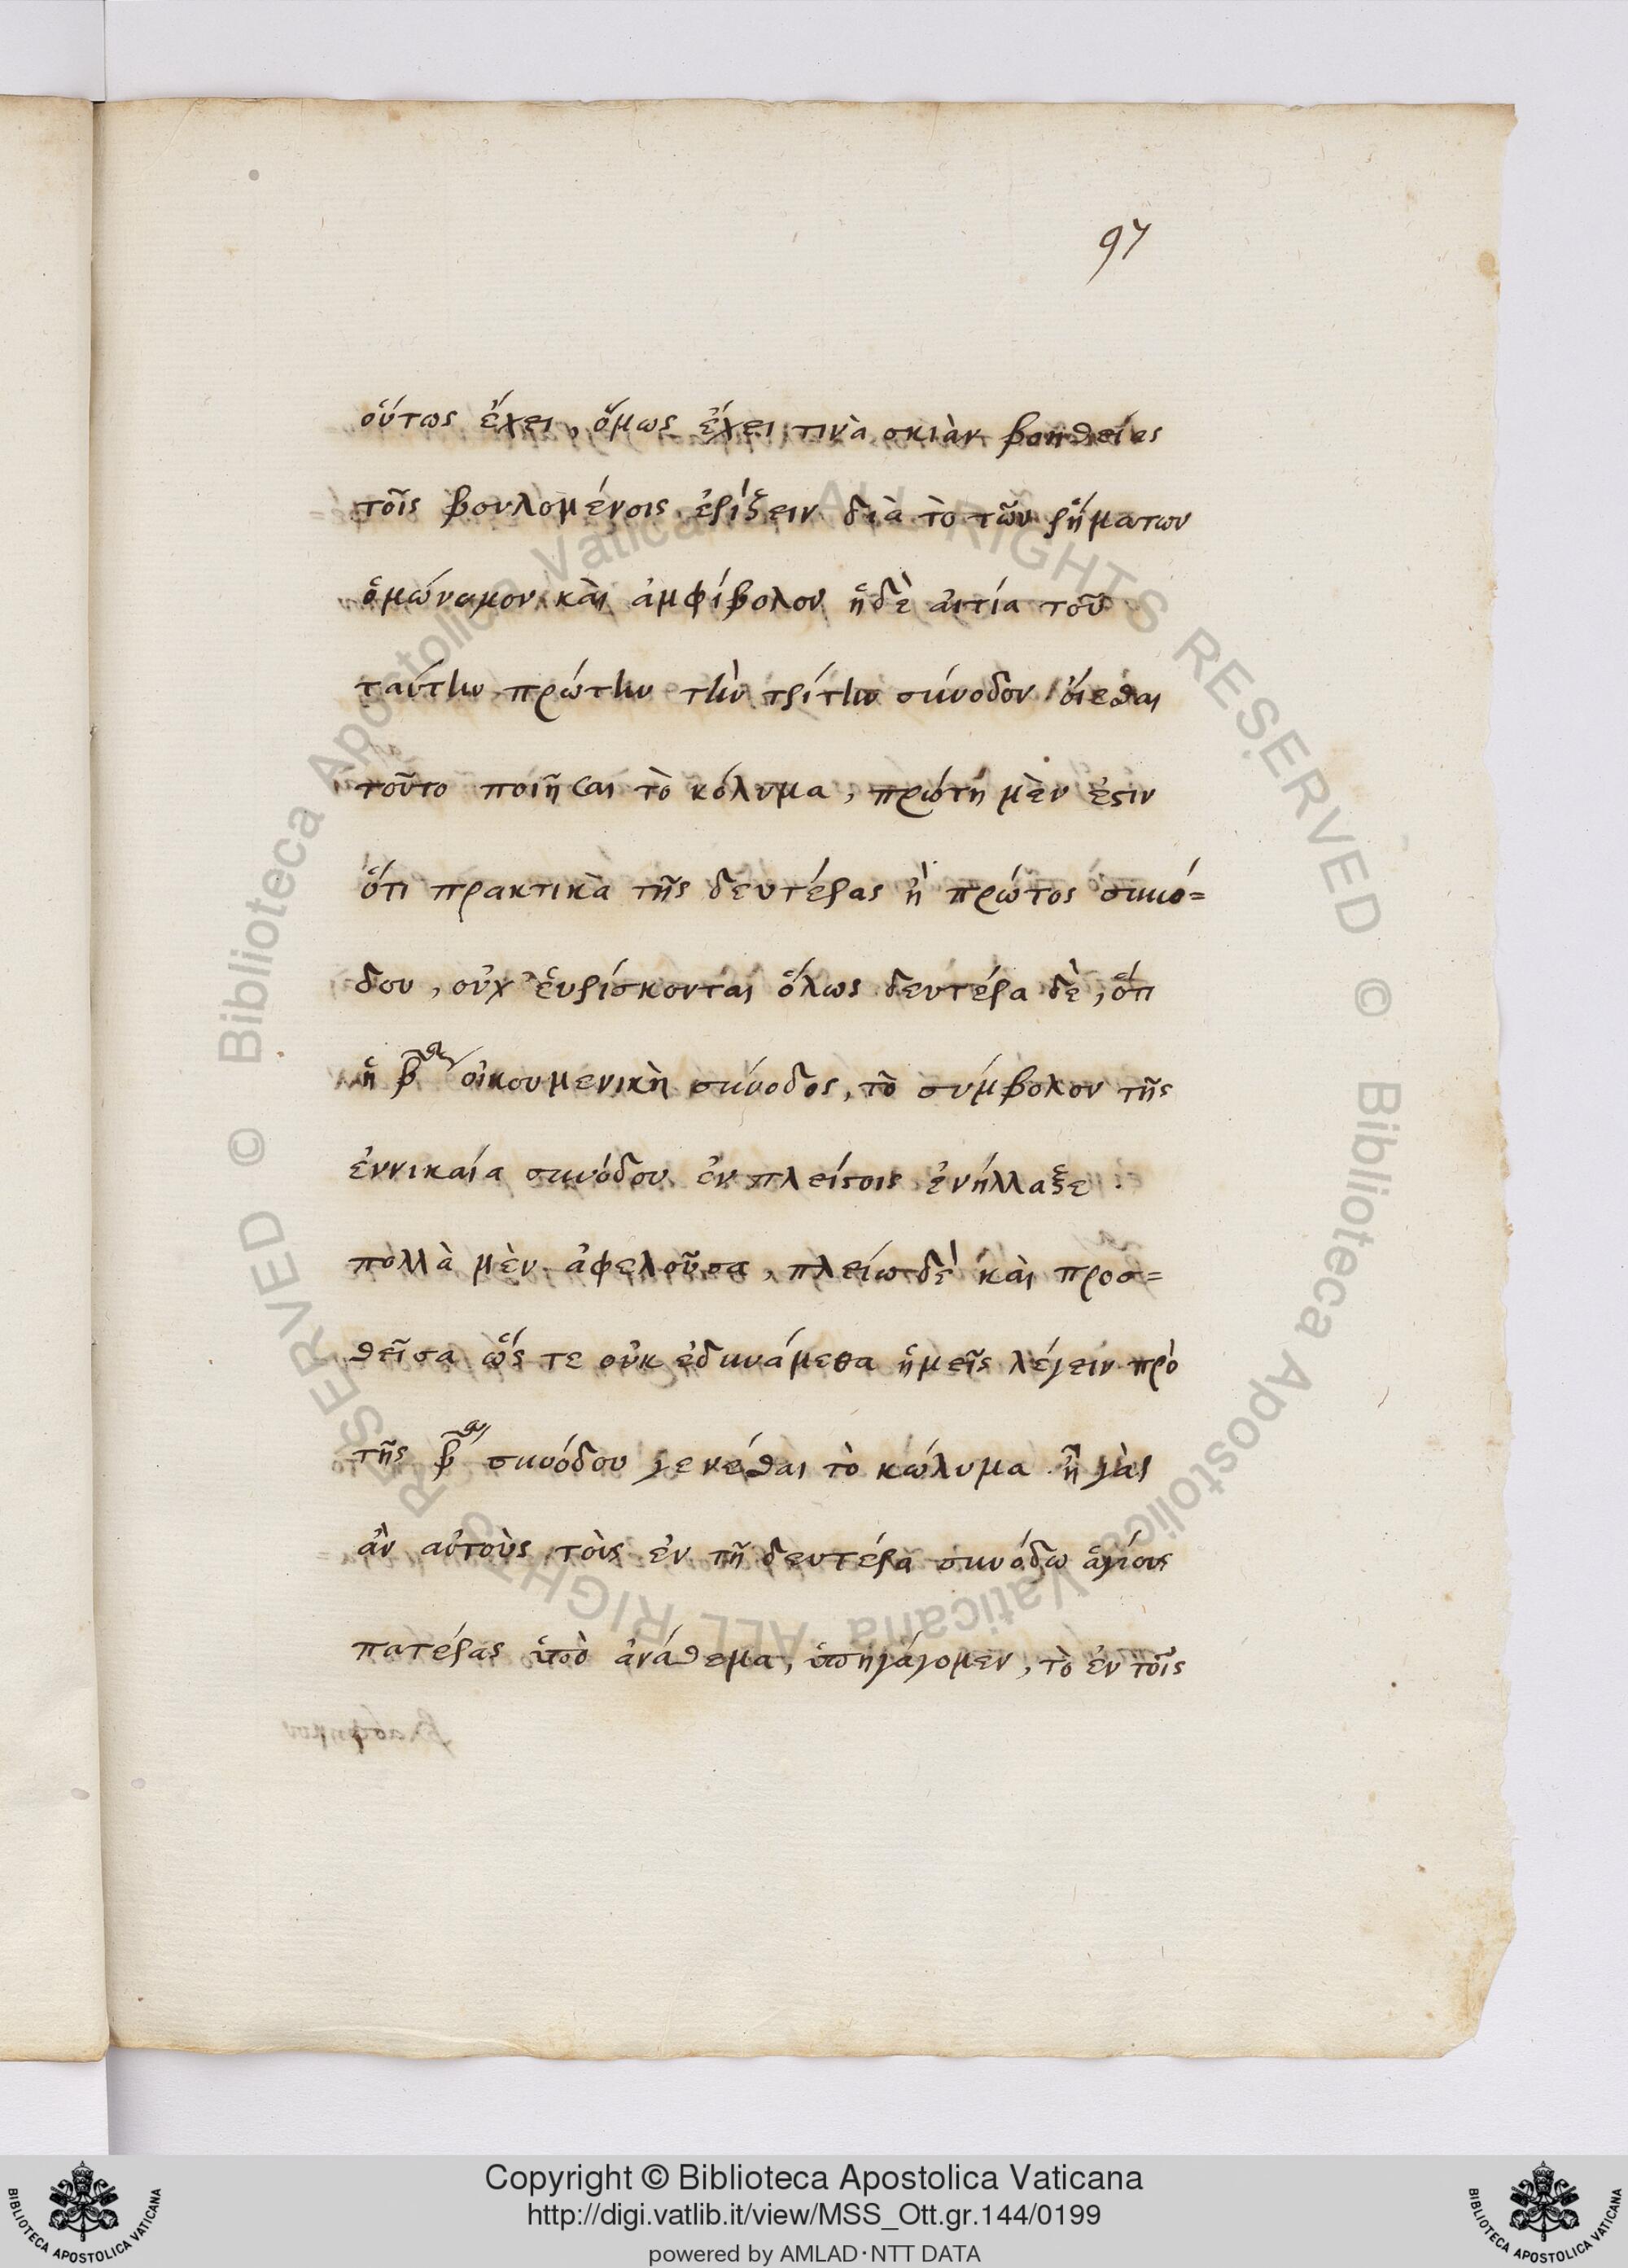 97
οὕτως ἔχει, ὅμως ἔχει τινὰ σκιὰν βοηθείες
τοῖς βουλομένοις ἐρίζειν διὰ τὸ τῶν ῥήματων
ὁμώνυμον καὶ ἀμφίβολον ἡδὲ αιτία τοῦ
ταύτην πρώτην τὴν τρίτην σύνοδον οἴεσθαι
τοῦτο ποιῆσαι τὸ κόλυμα, πρώτη μὲν ἐστιν
ὅτι πρακτικὰ τῆς δευτέρας ἢ πρώτος συνό=
δου, οὐχ εὑρίσκονται ὅλως δευτέρα δὲ, ὅτι
ἡ β̅ᵅ οἰκουμενικὴ σύνοδος, τὸ σύμβολον τῆς
ἐννικαία συνόδου ἐν πλείστοις ἐνήλλαξε.
πολλὰ μὲν ἀφελοῦσα, πλείω δὲ καὶ προσ=
θεῖσα ὥς τε οὐκ ἐδυνάμεθα ἡμεῖς λέγειν πρὸ
τῆς β̅ᵅ συνόδου γενέσθαι τὸ κώλυμα ἢ γὰρ
ἂν αὐτοὺς τοὺς ἐν τῆ δευτέρα συνόδω ἁγίους
πατέρας ὑπὸ ἀνάθεμα, ὑπηγάγομεν, τὸ ἐν τοῖς
Copyright © Biblioteca Apostolica Vaticana
http://digi.vatlib.it/view/MSS_Ott.gr.144/0199
powered by AMLAD·NTT DATA
BIBLIOTECA APOSTOLICA VATICANA
BIBLIOTECA APOSTOLICA VATICANA
© Biblioteca Apostolica Vaticana ALL RIGHTS RESERVED © Biblioteca Apostolica Vaticana ALL RIGHTS RESERVED